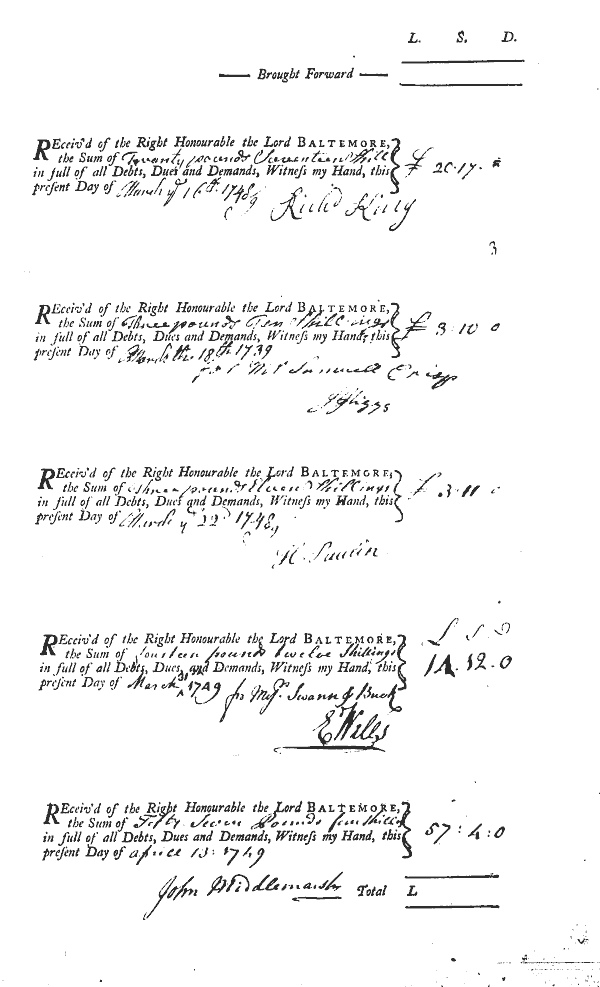 L. S. D.
Brought Forward
REceiv'd of the Right Honourable the Lord BALTEMORE,
the Sum of Twenty pounds Seventeen Shill
in full of all Debts, Dues and Demands, Witneſs my Hand, this
preſent Day of March ye 16th. 1748/9
£ 20.17.
Richd King
3
REceiv'd of the Right Honourable the Lord BALTEMORE,
the Sum of Three pounds Ten Shillings
in full of all Debts, Dues and Demands, Witneſs my Hand, this
preſent Day of March the 18th. 1739
£ 3 10 0
Mr Samuell Crisp
REceiv'd of the Right Honourable the Lord BALTEMORE,
the Sum of three pounds Eleven Shillings
in full of all Debts, Dues and Demands, Witneſs my Hand, this
preſent Day of March ye 22d 1748/9
£ 3.11
REceiv'd of the Right Honourable the Lord BALTEMORE,
the Sum of fourteen pounds twelve Shillings
in full of all Debts, Dues, and Demands, Witneſs my Hand, this
preſent Day of March 31 1749
L S D
14.12.0
for Messrs. Swann & Buck
E Wills
REceiv'd of the Right Honourable the Lord BALTEMORE,
the Sum of Fifty Seven Pounds four Shill
in full of all Debts, Dues and Demands, Witneſs my Hand, this
preſent Day of aprill 13: 1749
57:4:0
John Middlemarsh
Total L